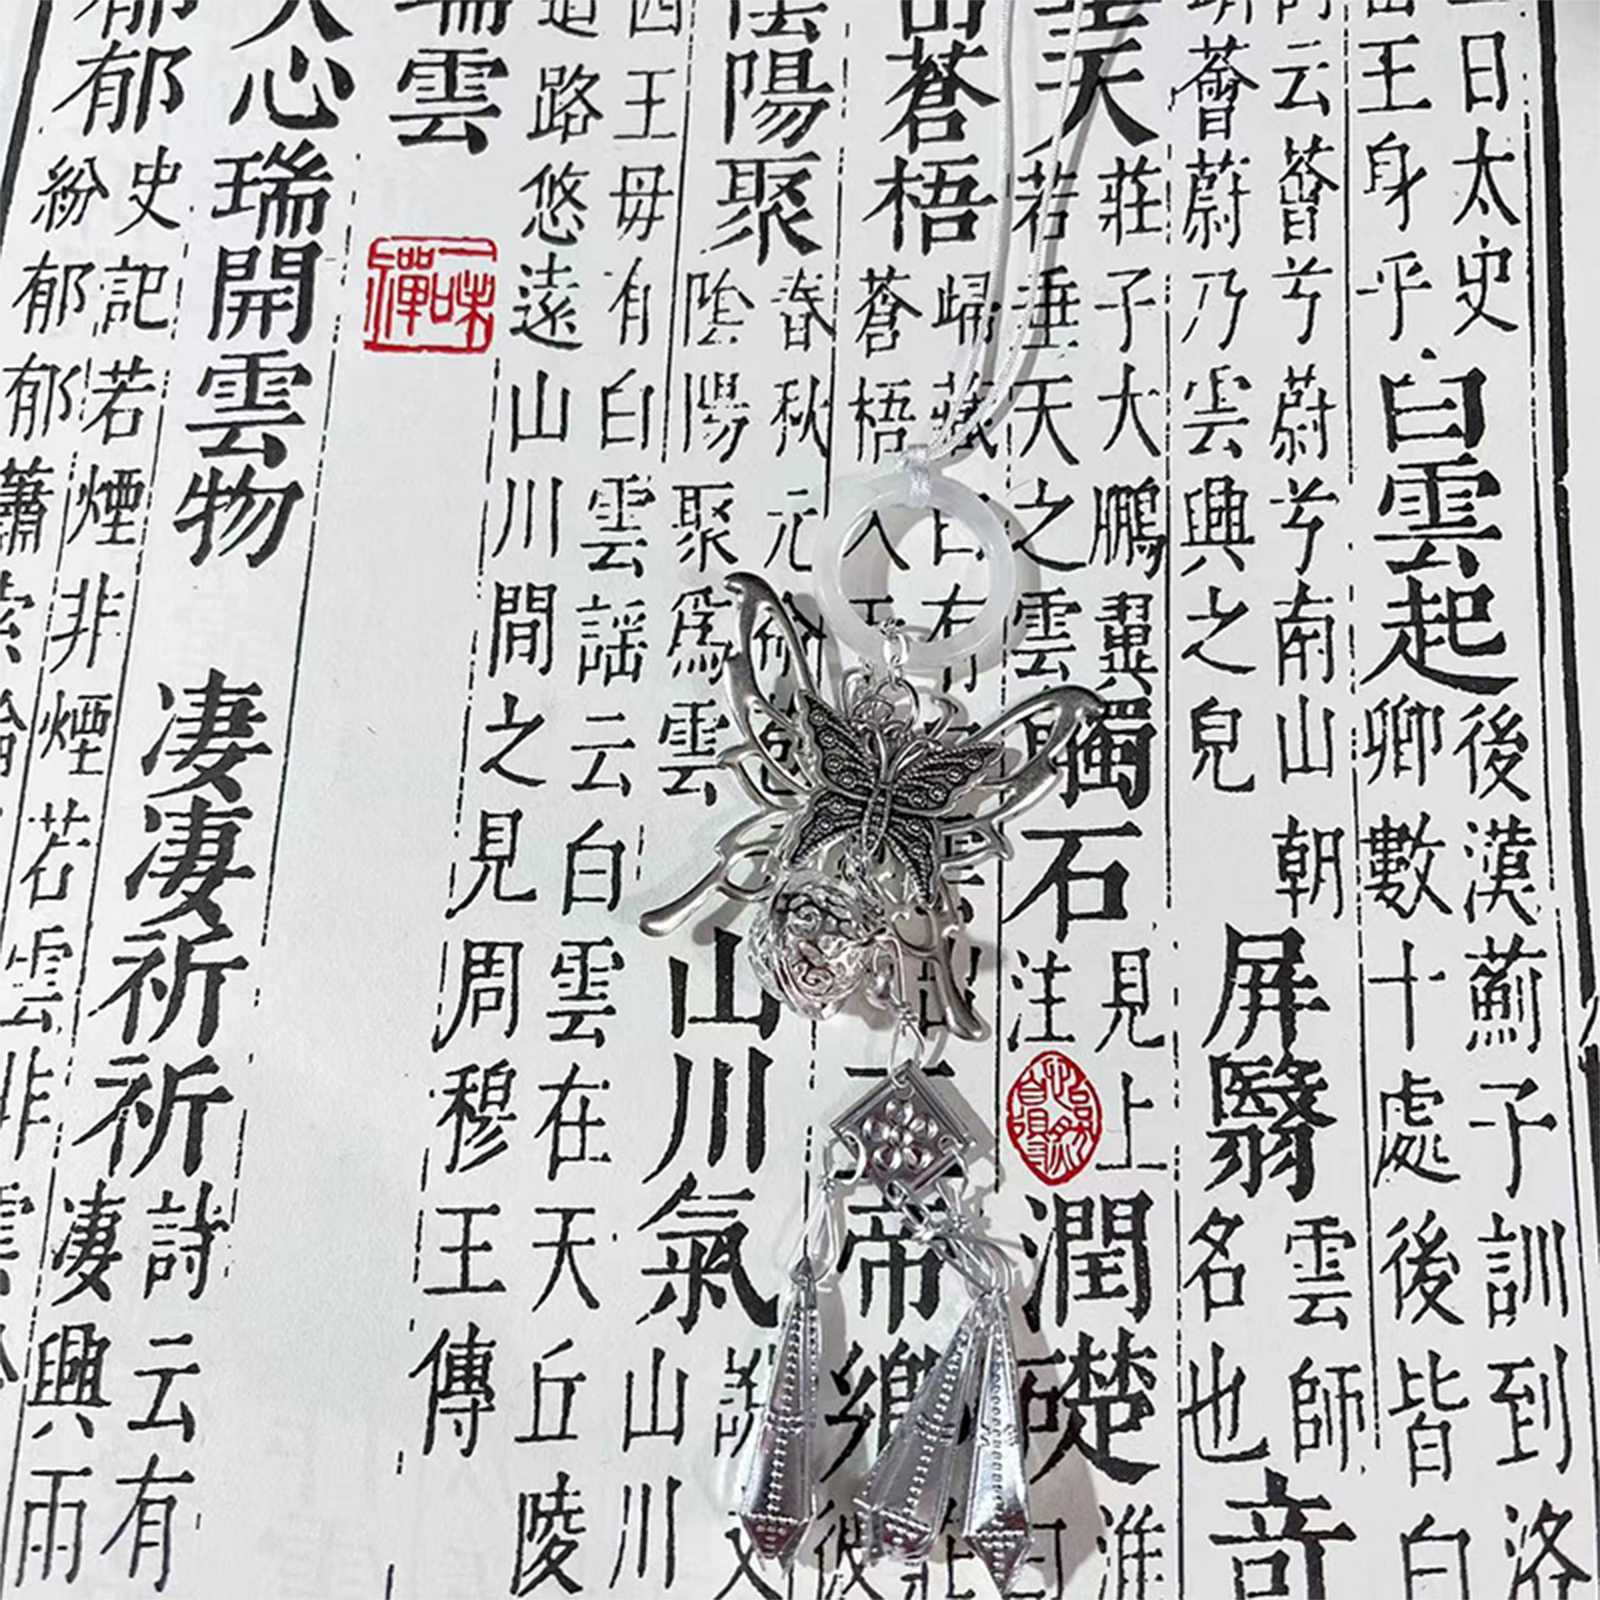 日太史
王身乎
白雲起
後漢薊子訓到洛
卿數十處後皆白
云薈兮蔚兮南山朝
薈蔚乃雲興之皃
屏翳
雲師
名也
天
莊子大鵬翼
若垂天之雲
觸石
見上
注
潤礎
淮
蒼梧
歸藏
蒼梧
帝鄉
陰陽聚
春秋元命苞
陰陽聚爲雲
山川氣
說文
山川
西王母有白雲謡云白雲在天丘陵
道路悠遠山川間之見周穆王傳
瑞雲
一味禪
心瑞開雲物
淒淒祈祈
詩云有
淒興雨
郁郁
史記若煙非煙若雲非雲
紛郁郁蕭索